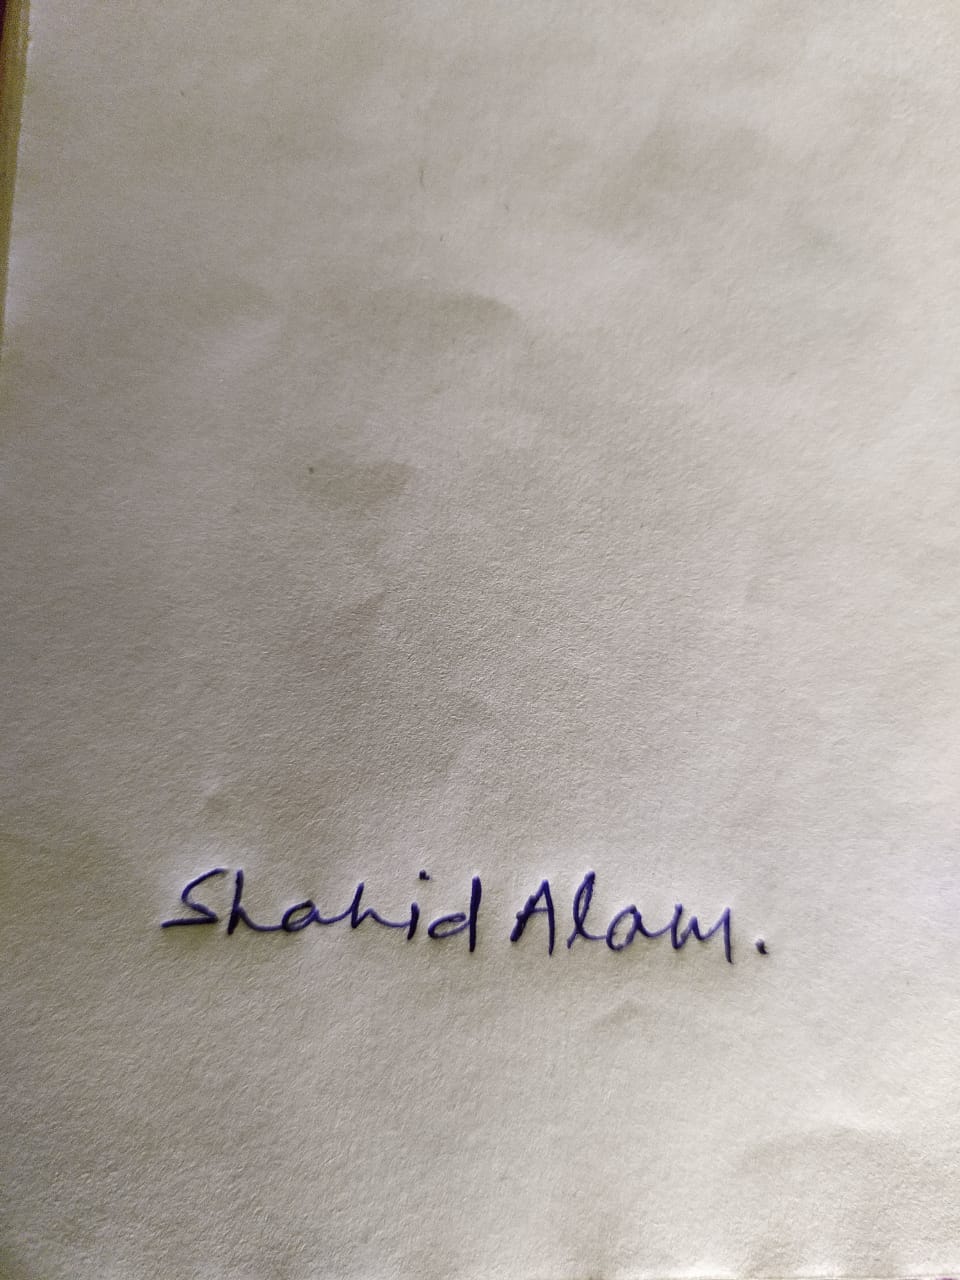 Shahid Alam.